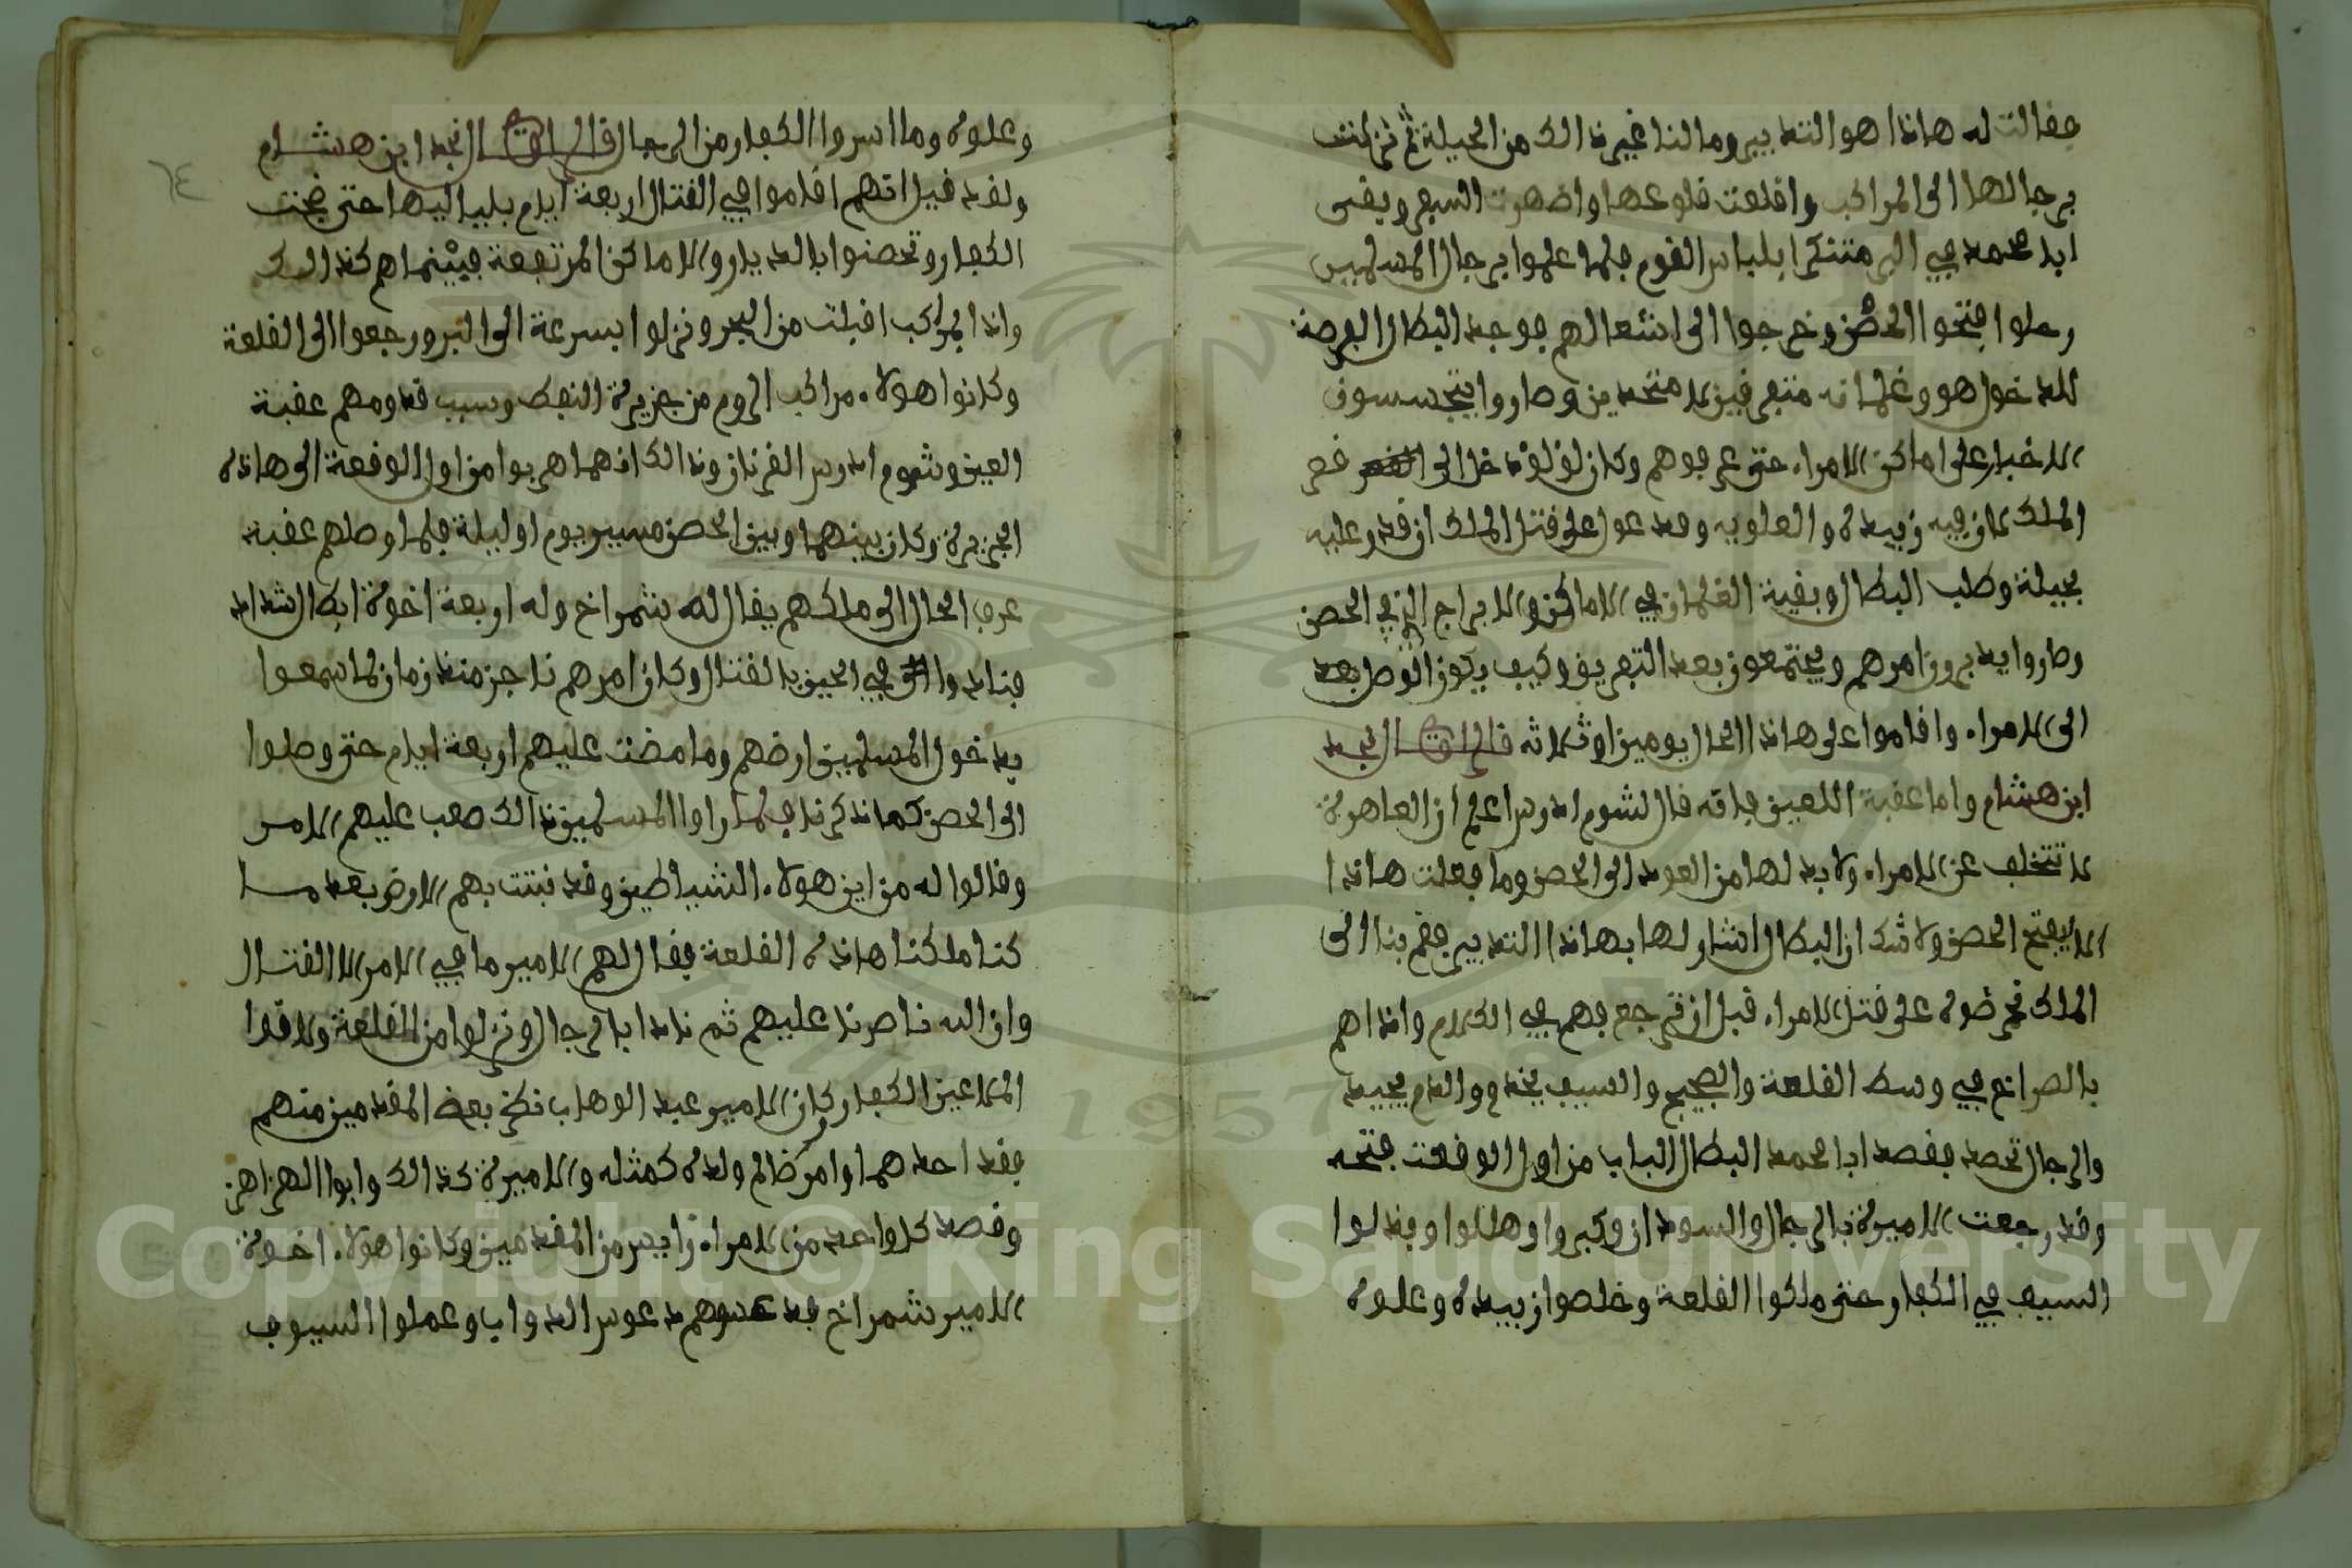 فقالت له هاذا هو التدبير وما لنا غير ذالك من الحيلة ثم نزلت
برجالها الى المراكب واقلعت قلوعها واضهرت السفر وبقى
ابا محمد في البر متنكرا بلباس القوم فلما علموا برجال المسلمين
رحلوا فتحوا الحصن وخرجوا الى اشغالهم فوجد البطال الفرصة
للدخول هو وغلمانه متفرقين لا متحدين وصاروا يتجسسون
الاخبار على اماكن الامراء حتى عرفوهم وكان لؤلؤ دخل الى قصر
الملك لان فيه زبيدة والعلويه وقد عول على قتل الملك ان قدر عليه
بحيلة وطلب البطال وبقية الغلمان في الاماكن والابراج التي في الحصن
وصاروا يدبرون امرهم ويجتمعون بعد التفريق وكيف يكون الوصل
الى الامراء واقاموا على هاذا الحال يومين او ثلاثه قال الراوي نجد
ابن هشام واما عقبة اللعين فانه قال لشوم ادرس اعلم ان العاهرة
لا تتخلف عن الامراء ولا بد لها من العود الى الحصن وما فعلت هاذا
الا ليفتح الحصن ولا شك ان البطال اشار لها بهاذا التدبير فقم بنا الى
الملك نحرضوه على قتل الامراء قبل ان ترجع فهم في الكلام واذا هم
بالصراخ في وسط القلعة والضجيج والسيف يخدم والدم يجيد
والرجال تحصد فقصد ابا محمد البطال الباب من اول الوقعت فتحه
وقد رجعت الاميرة بالرجال والسودان وكبروا وهللوا وبذلوا
السيف في الكفار حتى ملكوا القلعة وخلصوا زبيدة وعلوه
وعلوه وما اسروا الكفار من الرجال قال الراوي نجد ابن هشام
ولقد قيل انهم اقاموا في القتال اربعة ايام بلياليها حتى ضجت
الكفار وتحصنوا بالديار والاماكن المرتفعة فبينما هم كذالك
واذا بمراكب اقبلت من البحر ونزلوا بسرعة الى البر ورجعوا الى القلعة
وكانوا هولاء مراكب الروم من جزيرة النفط وسبب قدومهم عقبة
العين وشوم ادرس القرنان وذالك انهما هربوا من اول الوقعة الى هاذه
الجزيرة وكان بينهما وبين الحصن مسير يوم او ليلة فلما وصلهم عقبة
عرف الحال الى ملكهم يقال له شمراخ وله اربعة اخوة ابطال شداد
فنادوا في الحين بالقتال وكان امرهم ناجز منذ زمان لما سمعوا
بدخول المسلمين ارضهم وما مضت عليهم اربعة ايام حتى وصلوا
الى الحصن كما ذكرنا فلما راوا المسلمين ذالك صعب عليهم الامر
وقالوا له من اين هولاء الشياطين وقد نبتت بهم الارض بعد ما
كنا ملكنا هاذه القلعة فقال لهم الامير ما في الامر الا القتال
وان الله ناصرنا عليهم ثم نادا بالرجال ونزلوا من القلعة ولاقوا
الملاعين الكفار وكان الامير عبد الوهاب نظر بعض المقدمين منهم
فقد احدهما وامر ظالم ولده كمثله والاميرة كذالك وابوا الهزاهز
وقصد كل واحد من الامراء من المقدمين وكانوا هولاء اخوة
الامير شمراخ فد دعوس الدواب وعملوا السيوف